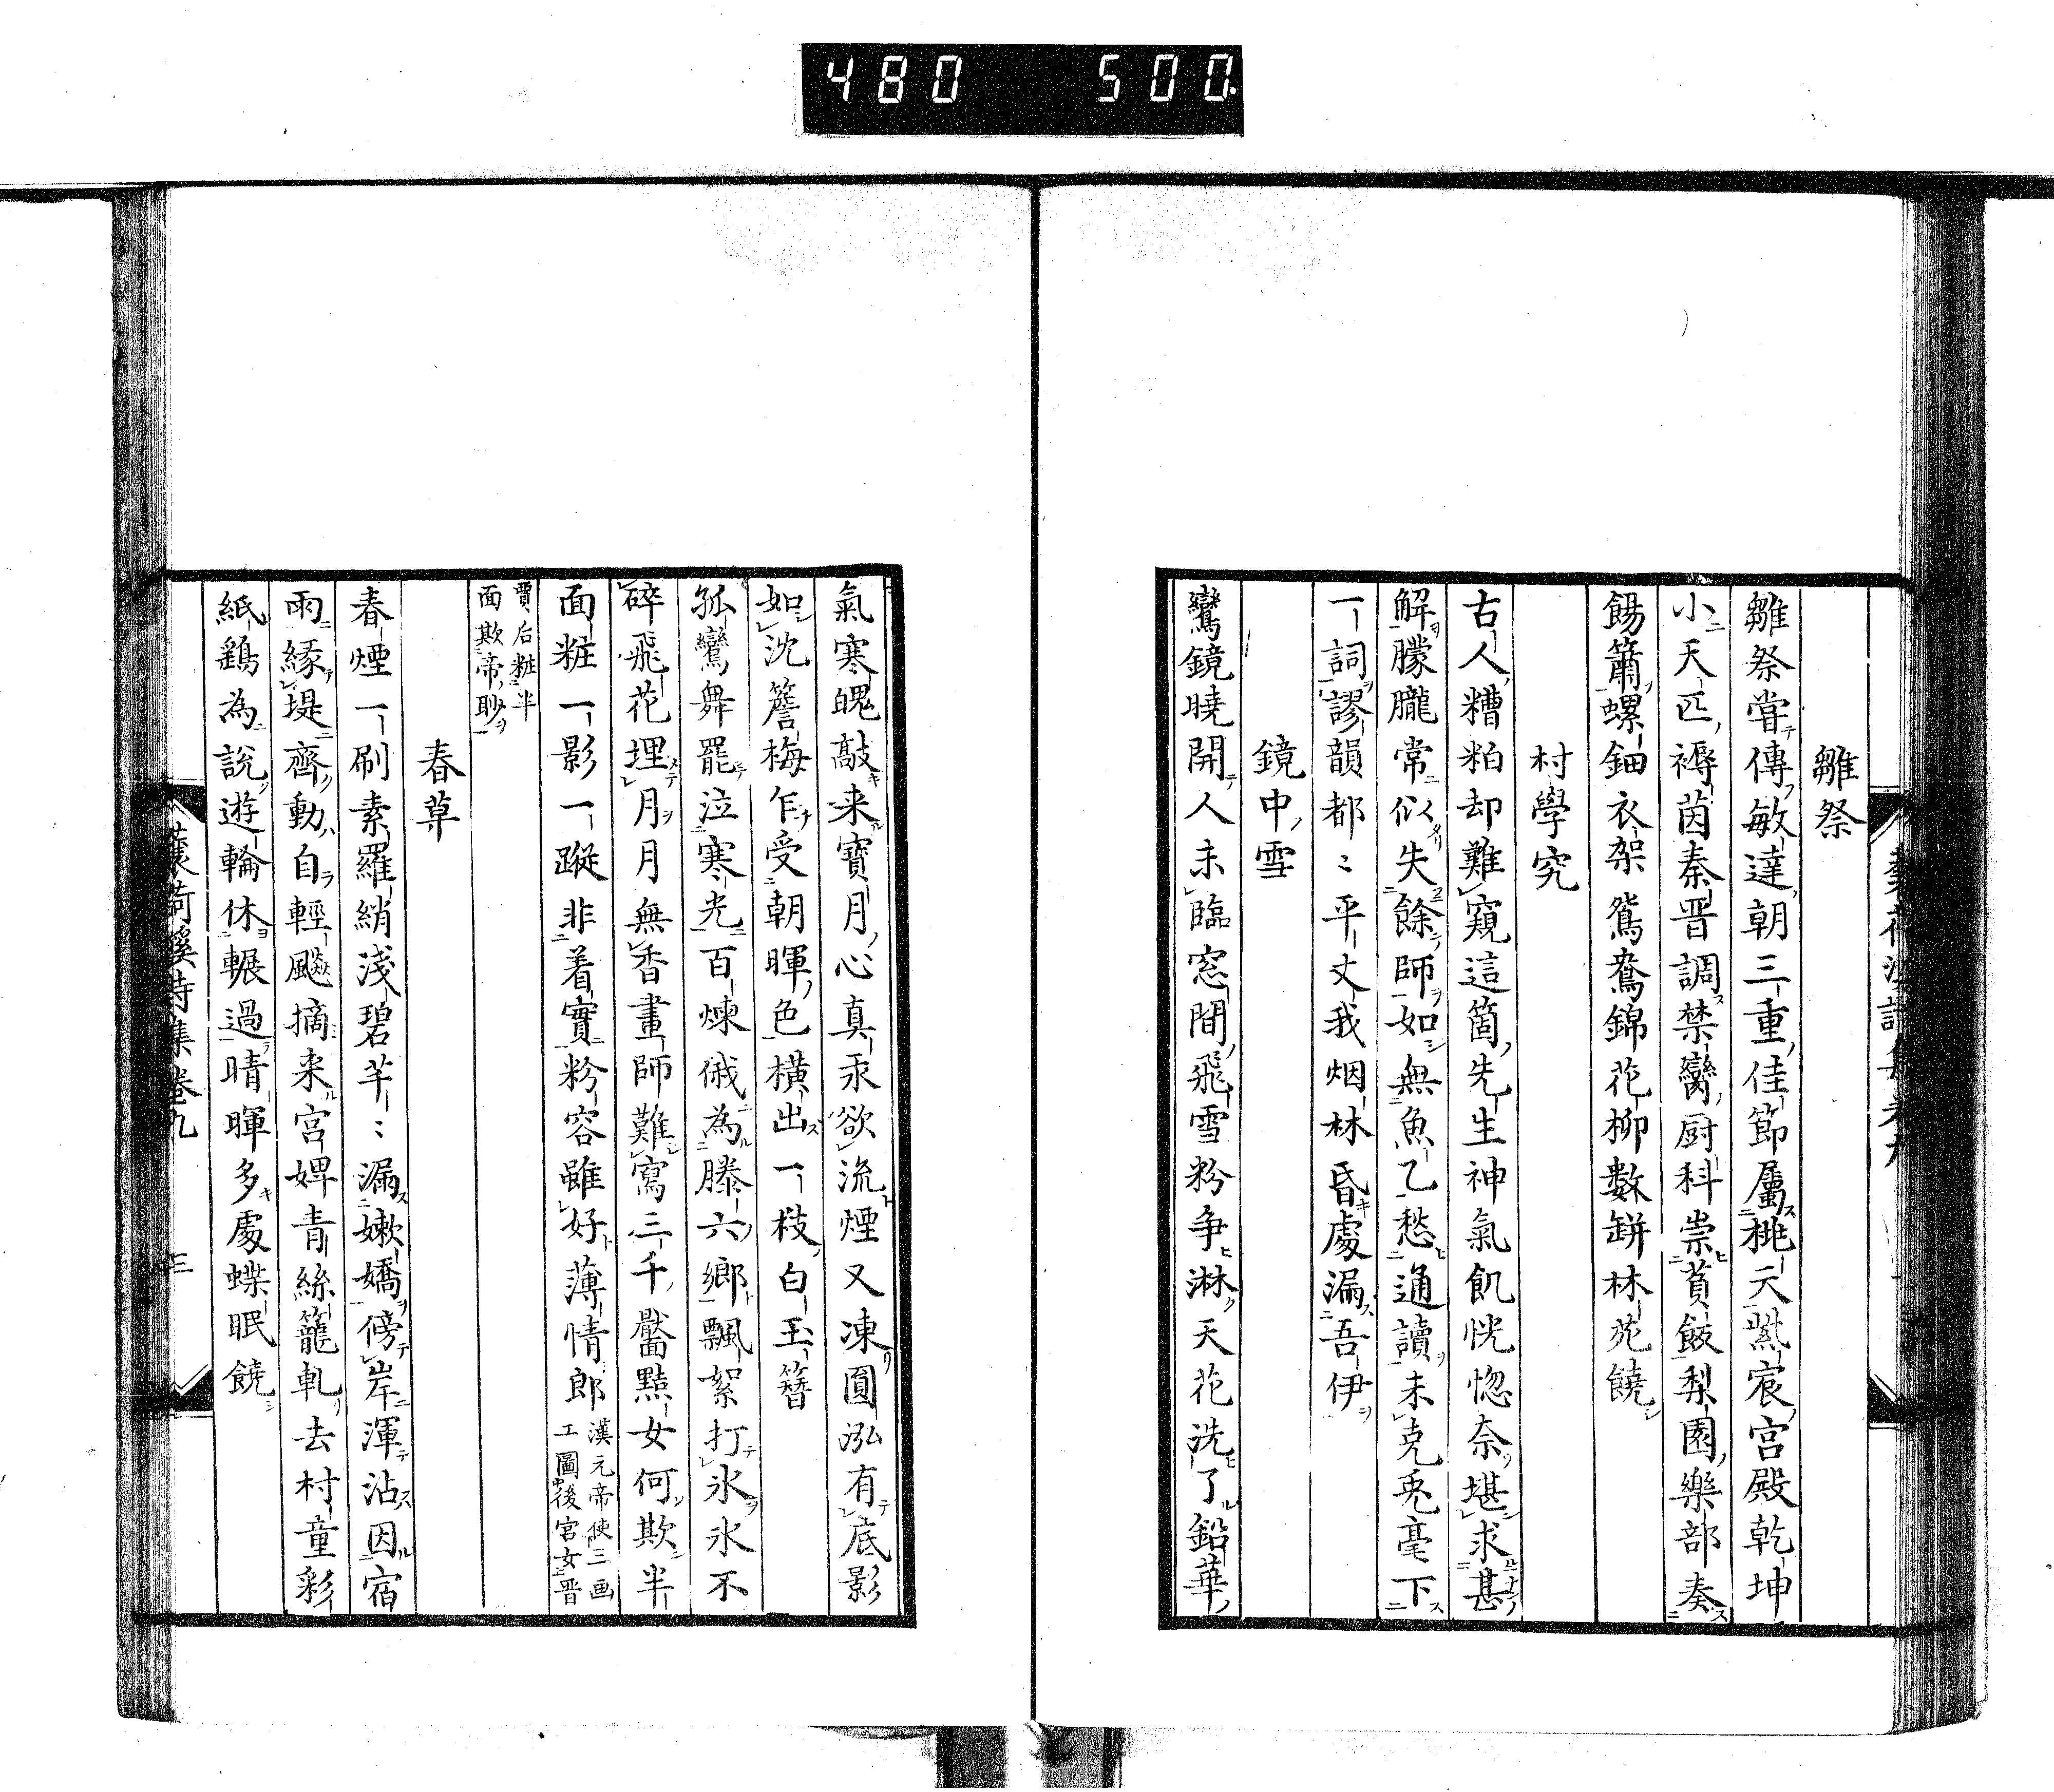 480 500
雛祭
雛祭嘗傳敏達朝三重佳節屬桃夭黻宸宮殿乾坤
小天匹褥茵秦晋調禁臠厨科崇蕡飯梨園樂部奏
餳簫螺鈿衣架鴛鴦錦花柳数缾林苑饒
村學究
古人糟粕却難窺這箇先生神氣飢恍惚奈堪求甚
解朦朧常似失餘師如無魚乙愁通讀未克兎毫下
一詞謬韻都〻平丈我烟林昏處漏吾伊
鏡中雪
鸞鏡曉開人未臨窓間飛雪粉争淋天花洗了鉛華
氣寒魄敲来寶月心真汞欲流煙又凍圓泓有底影
如沈簷梅乍受朝暉色横出一枝白玉簪
孤鸞舞罷泣寒光百煉俄為滕六郷飄絮打氷氷不
碎飛花埋月月無香畫師難寫三千靨點女何欺半
面粧一影一蹤非着實粉容雖好薄情郎漢元帝使三画工圖後宮女晋
賈后粧半面欺帝眇
春草
春煙一刷素羅綃淺碧芊〻漏嫩嬌傍岸渾沾因宿
雨縁堤齊動自輕飈摘来宮婢青絲籠軋去村童彩
紙鷂為說遊輪休輾過晴暉多處蝶眠饒
蓑荷溪詩集卷九
三